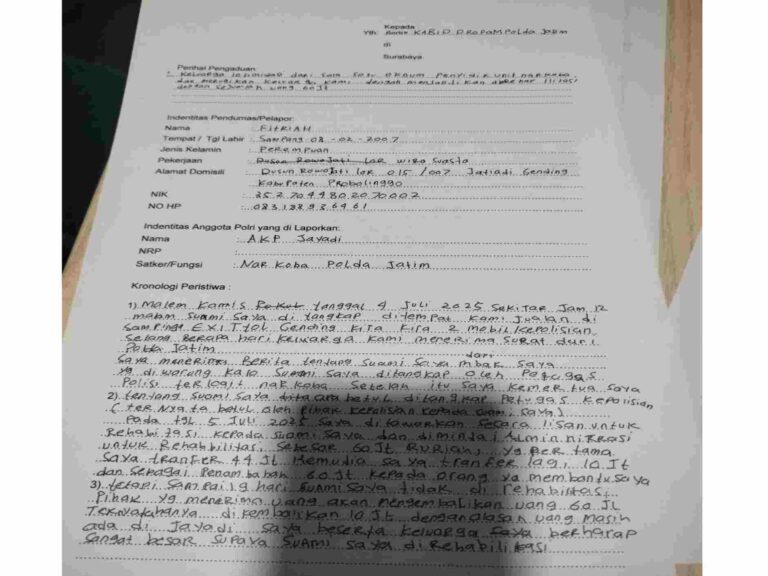 Kepada
Yth. KABID PROPAM Polda Jatim
di
Surabaya
Perihal Pengaduan:
Keluarga dari salah satu oknum Penyidik unit narkoba,
dan merugikan keluarga kami dengan menjanjikan rehabilitasi
dengan sejumlah uang 60 Jt
Indentitas Pendumas/Pelapor:
Nama : FITRIAH
Tempat / Tgl Lahir : Sampang 08 - 02 - 2007
Jenis Kelamin : Perempuan
Pekerjaan : Dusun Rowojati Lor wiraswasta
Alamat Domisili : Dusun Rowojati Lor 015/007 Jatiadi Gending
Kabupaten Probolinggo
NIK : 3527044802070002
NO HP : 083188936961
Indentitas Anggota Polri yang di Laporkan:
Nama : AKP Jayadi
NRP :
Satker/Fungsi : Narkoba Polda Jatim
Kronologi Peristiwa :
1) Malem Kamis Pukul tanggal 4 Juli 2025 sekitar Jam 12
malam Suami saya di tangkap ditempat kami Jualan di
samping EXIT tol Gending kira kira 2 mobil kepolisian
selang berapa hari keluarga kami menerima surat dari
Polda Jatim
saya menerima Berita tentang suami saya dari mbak saya
yg di warung kalo suami saya ditangkap oleh Petugas
Polisi terkait narkoba setelah itu saya ke mertua saya
2) tentang Suami saya betul ditangkap Petugas Kepolisian
(ternyata betul oleh pihak kepolisian kepada suami saya)
Pada tgl 5 Juli 2025 saya di tawarkan secara lisan untuk
Rehabitasi kepada suami saya dan dimintai Adminnitrasi
untuk Rehabilitasi, sebesar 60 Jt Rupiah, yg Pertama
saya transfer 44 Jt kemudia saya transfer lagi 10 Jt
dan sebagai Penambahan 60 Jt kepada orang yg membantu saya
3) tetapi sampai 9 hari suami saya tidak di rehabilitasi
Pihak yg menerima uang akan mengembalikan uang 60 Jt
Ternyatahanya di kembalikan 10 Jt dengan alasan uang masih
ada di Jayadi saya beserta keluarga saya berharap
sangat besar supaya suami saya di Rehabilitasi